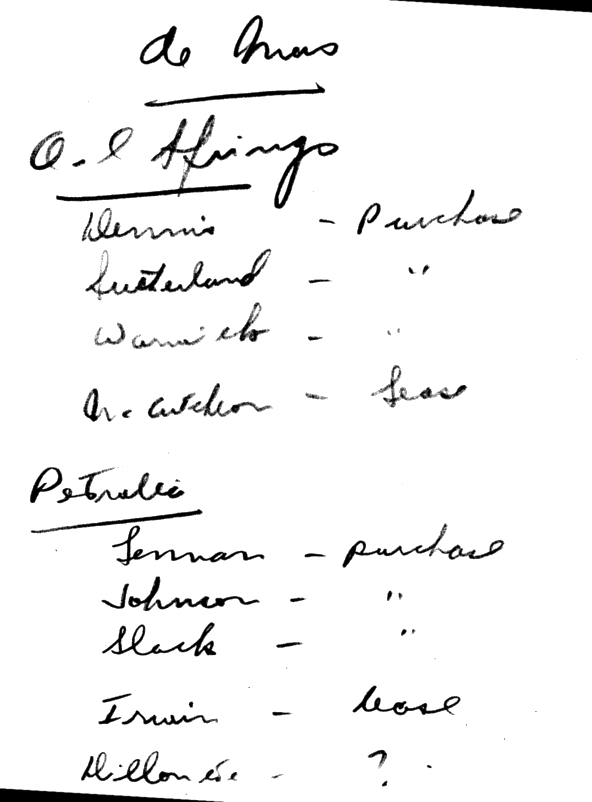 Oil Springs
Dennis - Purchase
Sutterland - "
Warwick - "
McCutcheon - Lease
Petrolia
Lennan - purchase
Johnson - "
Slack - "
Irwin - lease
- ?